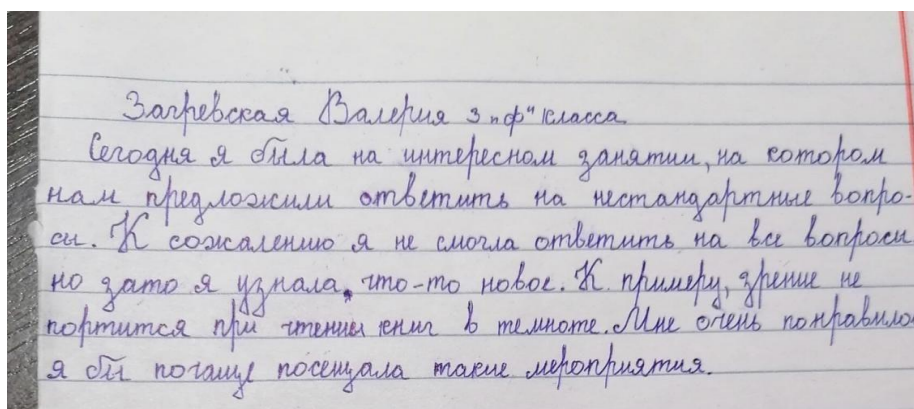 Загревская Валерия 3 „ф" класса
Сегодня я была на интересном занятии, на котором
нам предложили ответить на нестандартные вопро-
сы. К сожалению я не смогла ответить на все вопросы
но зато я узнала что-то новое. К примеру, зрение не
портится при чтении книг в темноте. Мне очень понравило
я бы почаще посещала такие мероприятия.